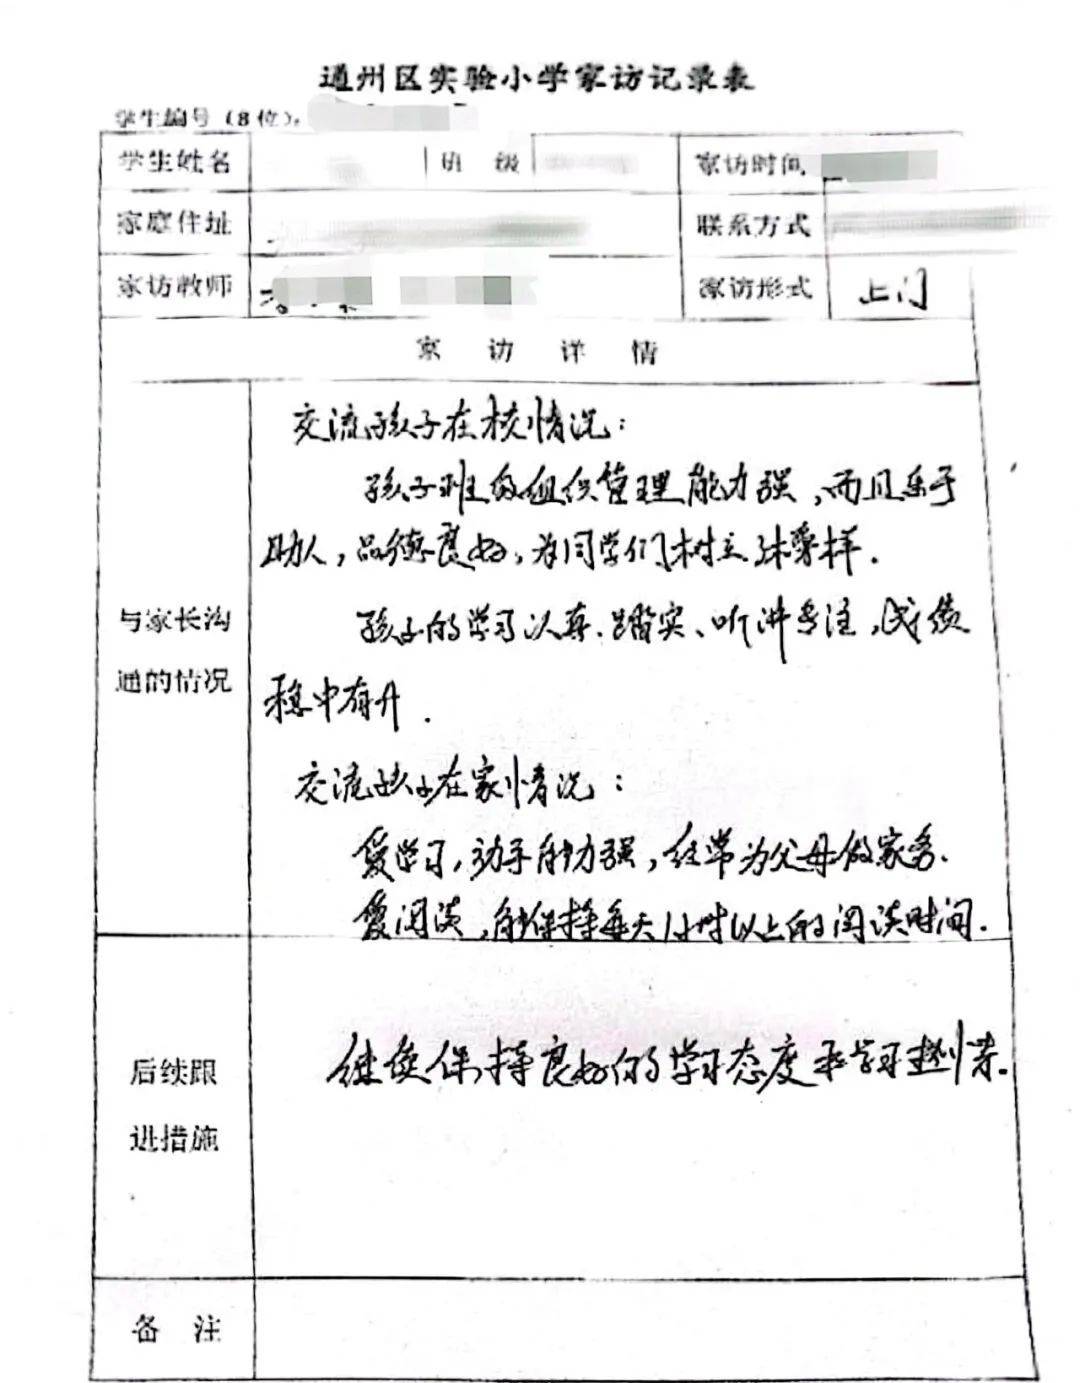 通州区实验小学家访记录表
学生编号（8位）：
学生姓名 班 级 家访时间
家庭住址 联系方式
家访教师 家访形式 上门
家 访 详 情
与家长沟
通的情况
交流孩子在校情况：
孩子班级组织管理能力强，而且乐于
助人，品德良好，为同学们树立好榜样.
孩子的学习认真、踏实、听讲专注，成绩
稳中有升.
交流孩子在家情况：
爱学习，动手能力强，经常为父母做家务.
爱阅读，能保持每天1小时以上的阅读时间.
后续跟
进措施
继续保持良好的学习态度和学习
备 注